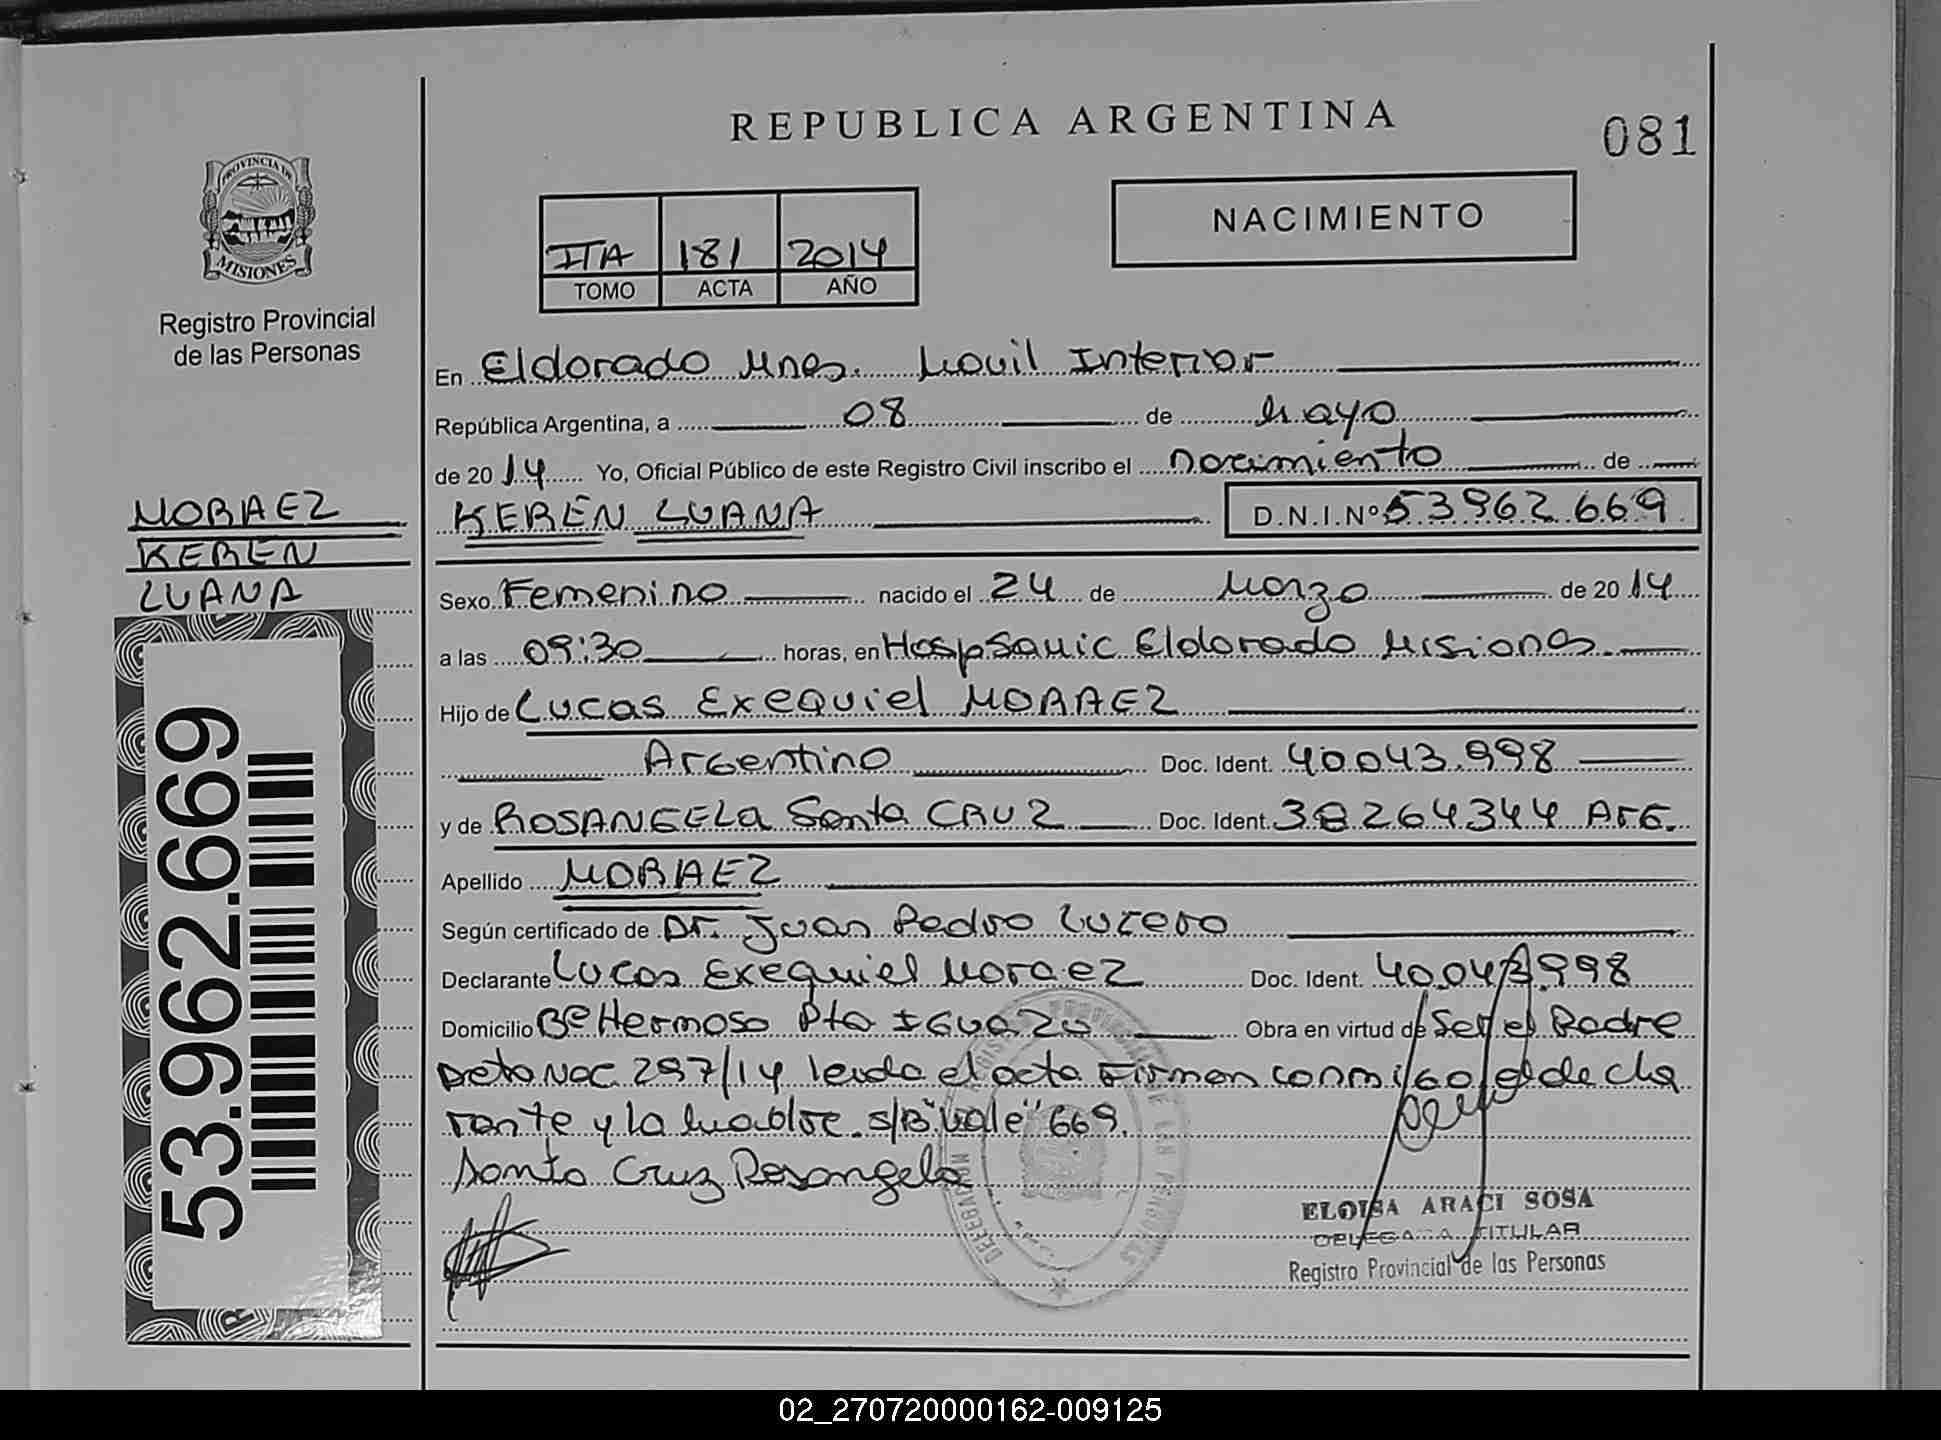 REPUBLICA ARGENTINA
081
PROVINCIA DE
MISIONES
Registro Provincial
de las Personas
ITA 181 2014
TOMO ACTA AÑO
NACIMIENTO
En Eldorado Mnes. Movil Interior
República Argentina, a 08 de Mayo
de 2014 Yo, Oficial Público de este Registro Civil inscribo el nacimiento de
KEREN LUANA D.N.I.Nº 53962.669
MORAEZ
KEREN
LUANA
Sexo Femenino nacido el 24 de Marzo de 2014
a las 09:30 horas, en Hosp Samic Eldorado Misiones.
Hijo de Lucas Exequiel MORAEZ
Argentino Doc. Ident. 40.043.998
y de ROSANGELA Santa CRUZ Doc. Ident. 38264344 ARG.
Apellido MORAEZ
Según certificado de Dr. Juan Pedro Lucero
Declarante Lucas Exequiel Moraez Doc. Ident. 40.043.998
Domicilio Bº Hermoso Pto IGUAZU Obra en virtud de Ser el Padre
Acta Nac. 297/14 leida el acta Firman conmigo el decla
rante y la Madre. S/R "vale" 669.
Santa Cruz Rosangela
53.962.669
ELOISA ARACI SOSA
DELEGADA TITULAR
Registro Provincial de las Personas
02_270720000162-009125